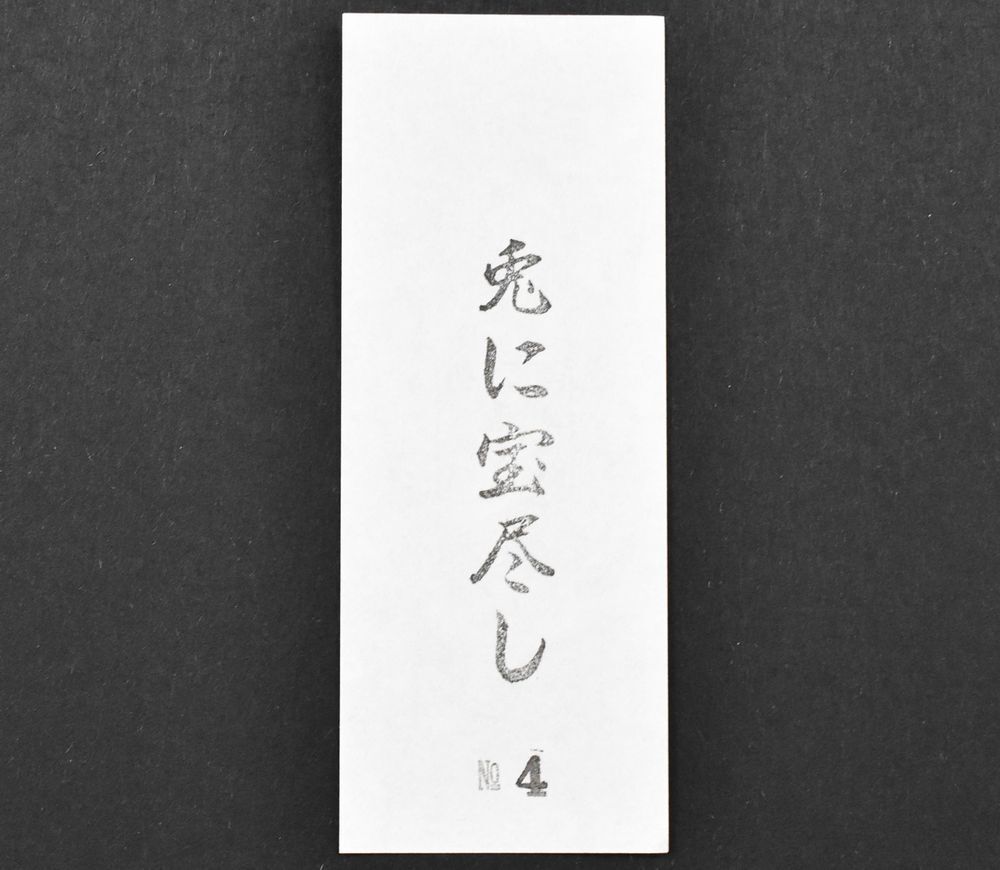 兎に宝尽し
№ 4